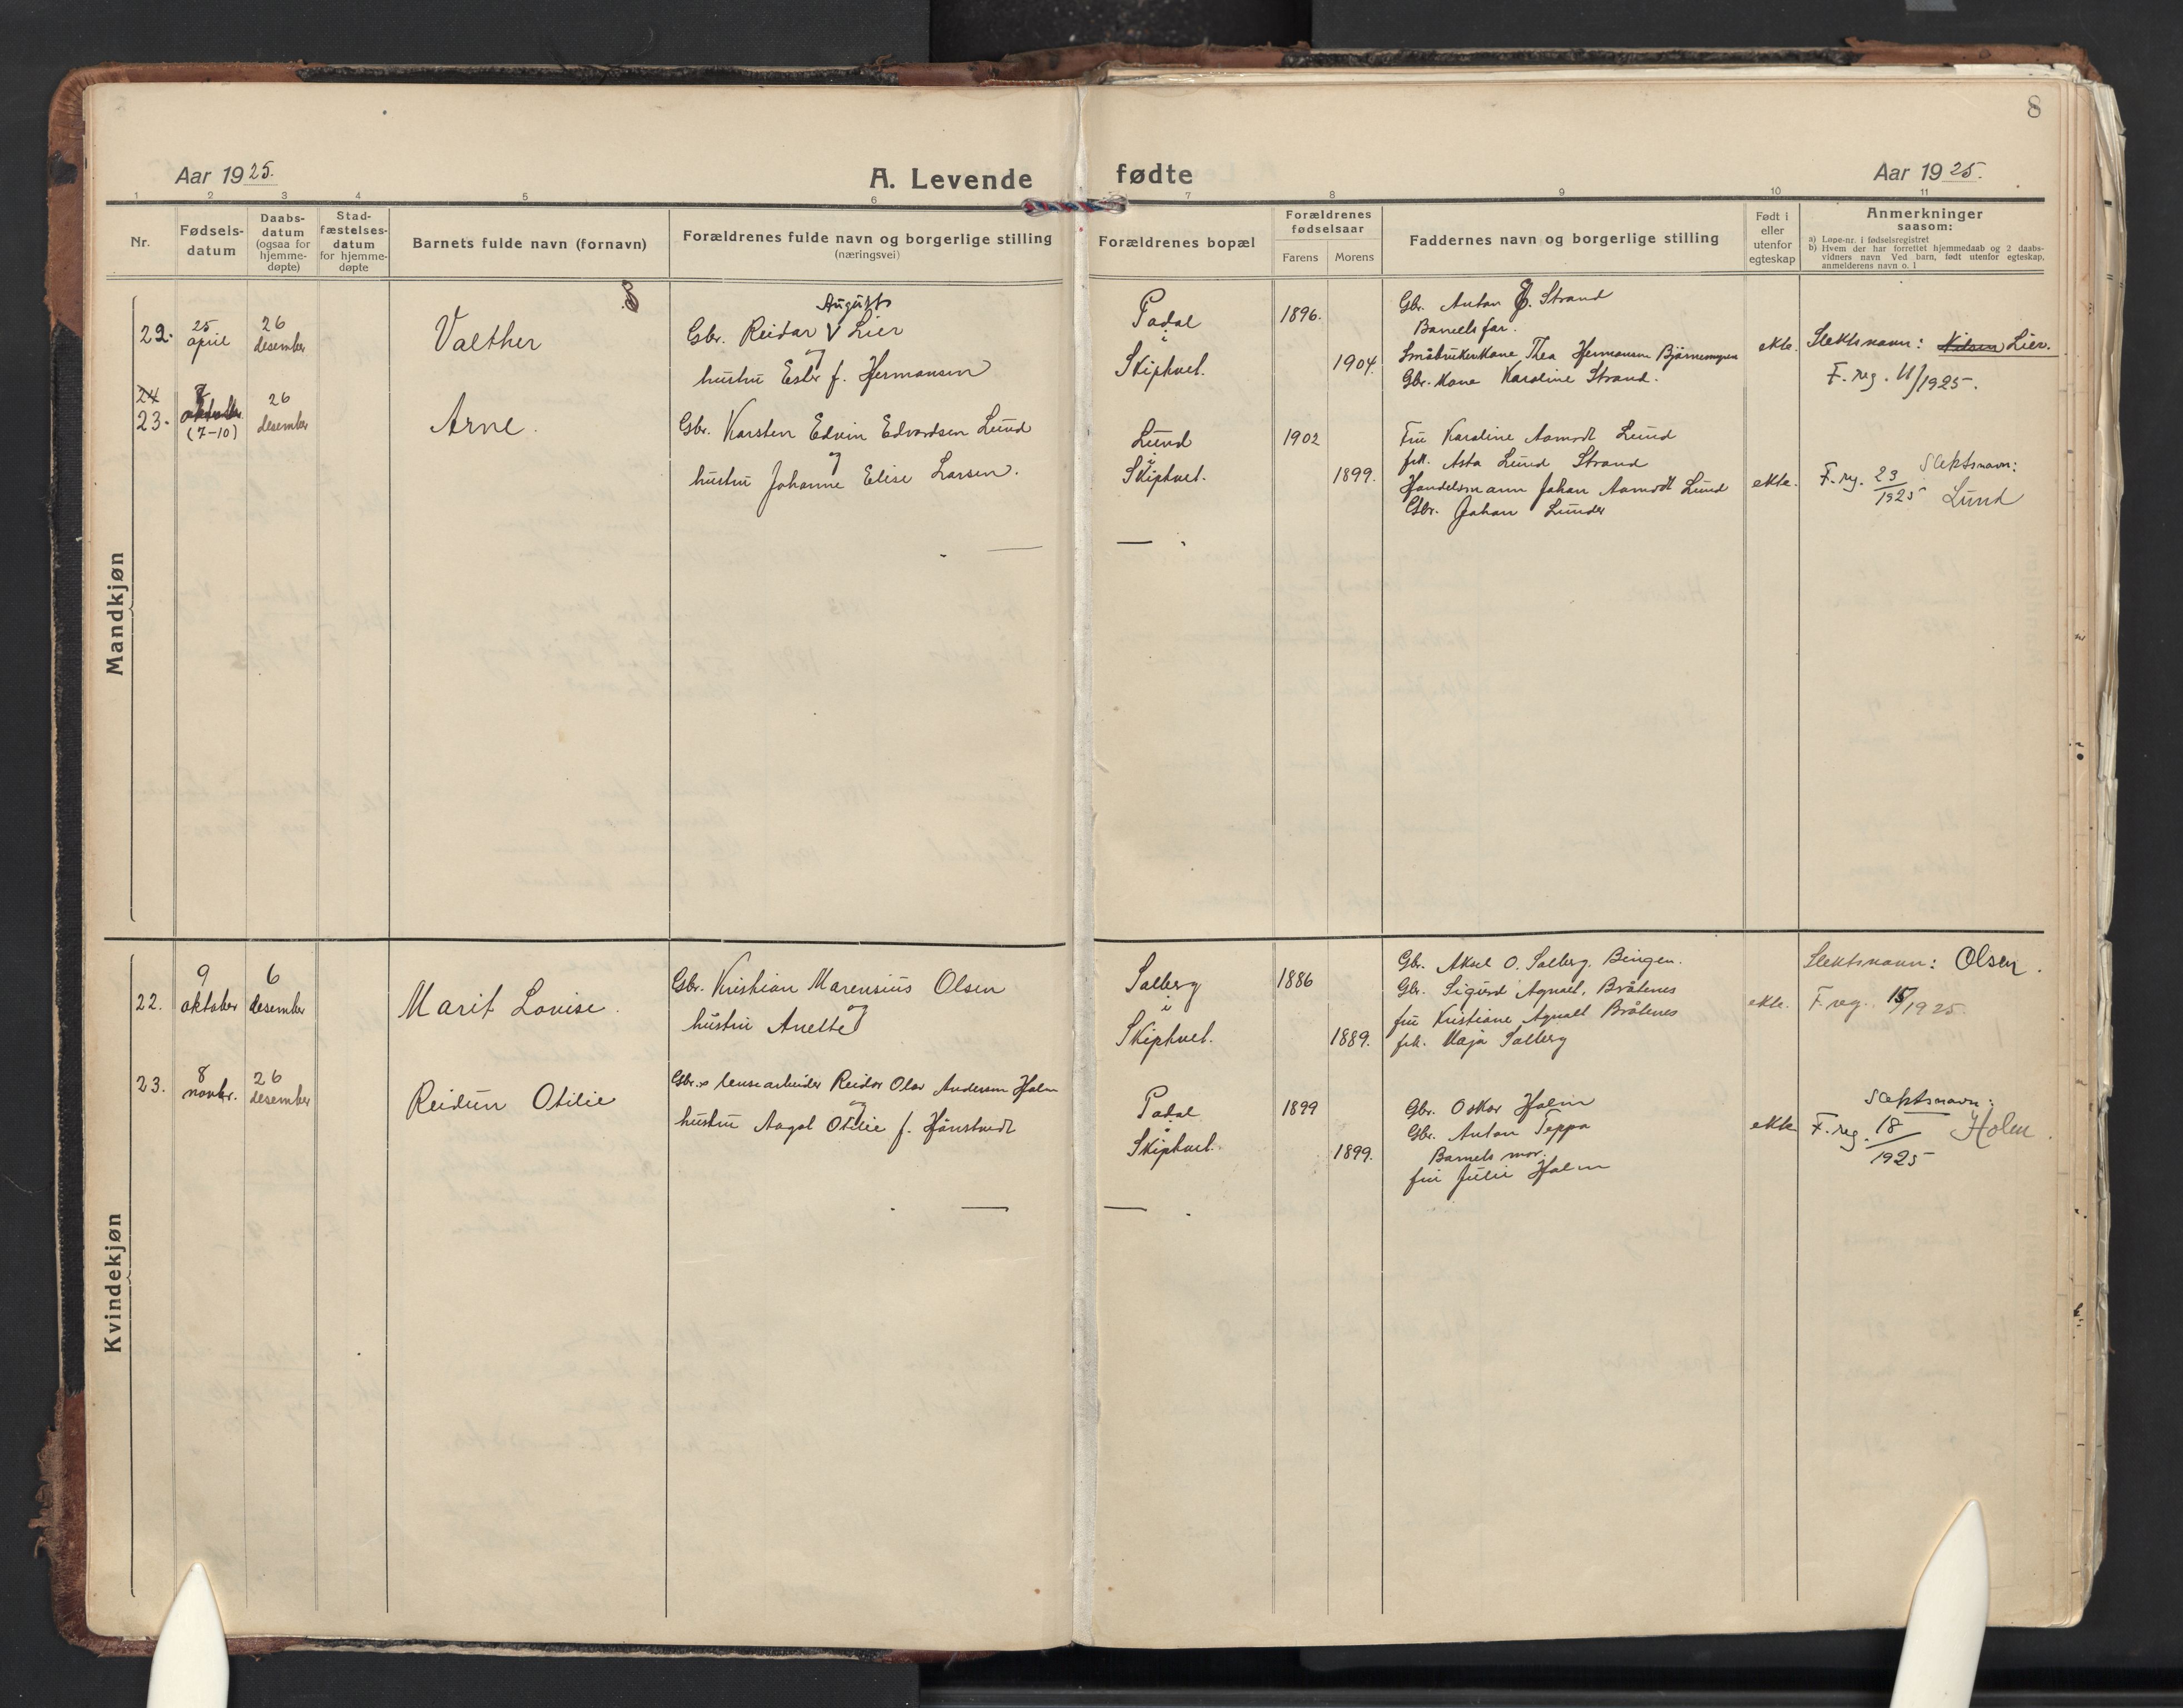 8
Aar 1925.
A. Levende fødte
Aar 1925.
1 2 3 4 5 6 7 8 9 10 11
Nr.
Fødsels-
datum
Daabs-
datum
(ogsaa for
hjemme-
døpte)
Stad-
fæstelses-
datum
for hjemme-
døpte
Barnets fulde navn (fornavn)
Forældrenes fulde navn og borgerlige stilling
(næringsvei)
Forældrenes bopæl
Forældrenes
fødselsaar
Farens
Morens
Faddernes navn og borgerlige stilling
Født i
eller
utenfor
egteskap
Anmerkninger
saasom:
a) Løpe-nr. i fødselsregistret
b) Hvem der har forrettet hjemmedaab og 2 daabs-
vidners navn Ved barn, født utenfor egteskap,
anmelderens navn o. l
Mandkjøn
22.
25
april
26
desember
Valther
August
Gbr. Reidar V Lier
og
hustru Ester f. Hermansen
Padal
i
Skiphvet.
1896.
1904.
Gbr. Anton J. Strand
Barnets far.
Småbrukerkone Thea Hermansen Bjørnemyren
Gbr. kone Karoline Strand.
ekte.
Slektsnavn: Nilsen Lier.
F. reg. 11/1925.
24
23.
8
oktober
(7-10)
26
desember
Arne.
Gbr. Karsten Edvin Edvardsen Lund
og
hustru Johanne Elise Larsen.
Lund
i
Skiphvet.
1902
1899.
Fru Karoline Aamodt Lund
frk. Asta Lund Strand
Handelsmann Johan Aamodt Lund
Gbr. Johan Lunder
ekte.
F. reg. 23
1925
Slektsnavn:
Lund
Kvindekjøn
22.
9
oktober
6
desember
Marit Lovise.
Gbr. Kristian Marensius Olsen
og
hustru Anette
Solberg
i
Skiphvet.
1886
1889.
Gbr. Aksel O. Solberg. Bingen.
Gbr. Sigurd Agnalt, Bråtenes
fru Kristiane Agnalt Bråtenes
frk. Maja Solberg
ekte.
Slektsnavn: Olsen.
F. reg. 15/1925.
23.
8
novbr.
26
desember
Reidun Otilie
Gbr. & lensearbeider Reidar Olav Andersen Holm
og
hustru Aagot Otilie f. Hanstvedt
Padal
i
Skiphvet.
1899
1899.
Gbr. Oskar Holm
Gbr. Anton Teppa
Barnets mor.
fru Julie Holm
ekte
F. reg. 18
1925
Slektsnavn:
Holm.